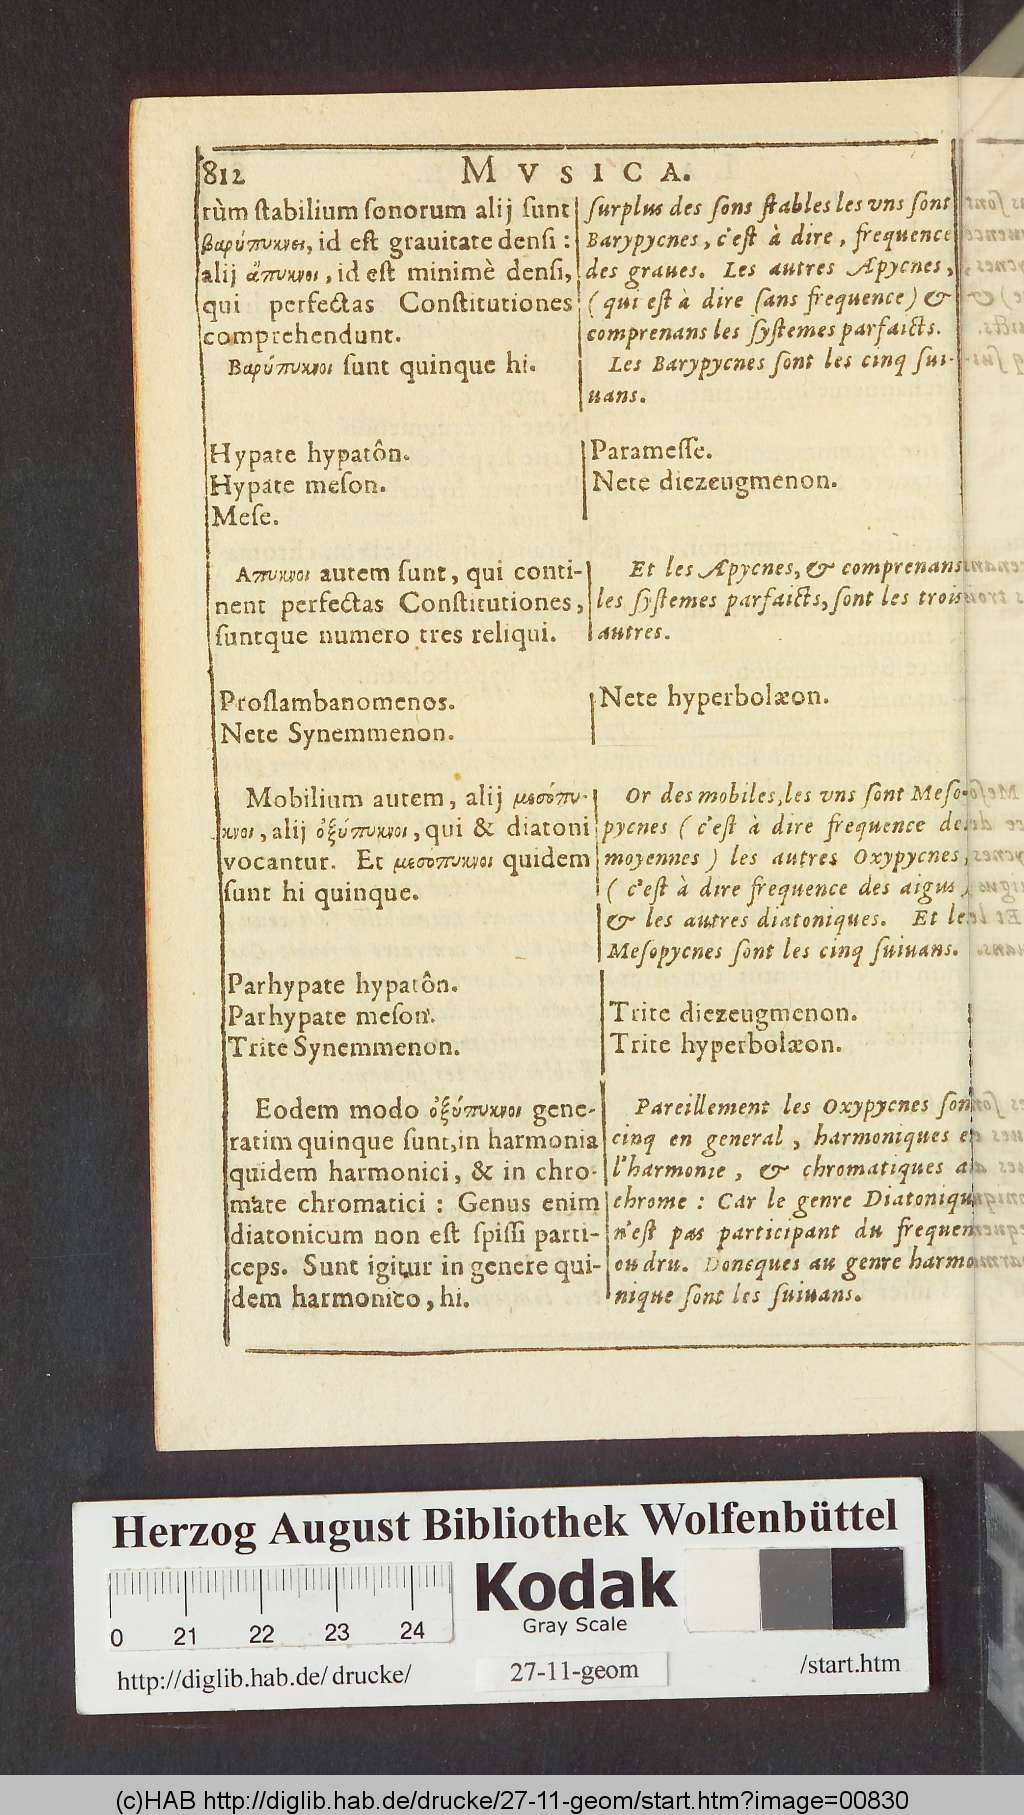 812
MVSICA.
rùm ſtabilium ſonorum alij ſunt
βαρύπυκνοι, id eſt grauitate denſi :
alij ἄπυκνοι, id eſt minimè denſi,
qui perfectas Conſtitutiones
comprehendunt.
Βαρύπυκνοι ſunt quinque hi.
ſurplus des ſons ſtables les vns ſont
Barypycnes, c'eſt à dire, frequence
des graues. Les autres Æpycnes,
( qui eſt à dire ſans frequence ) &
comprenans les ſyſtemes parfaicts.
Les Barypycnes ſont les cinq ſui-
uans.
Hypate hypatôn.
Hypate meſon.
Meſe.
Parameſſe.
Nete diezeugmenon.
Απυκνοι autem ſunt, qui conti-
nent perfectas Conſtitutiones,
ſuntque numero tres reliqui.
Et les Æpycnes, & comprenans
les ſyſtemes parfaicts, ſont les trois
autres.
Proſlambanomenos.
Nete Synemmenon.
Nete hyperbolæon.
Mobilium autem, alij μεσόπυ-
κνοι, alij ὀξύπυκνοι, qui & diatoni
vocantur. Et μεσόπυκνοι quidem
ſunt hi quinque.
Or des mobiles, les vns ſont Meſo-
pycnes ( c'eſt à dire frequence des
moyennes ) les autres Oxypycnes,
( c'eſt à dire frequence des aigus )
& les autres diatoniques. Et les
Meſopycnes ſont les cinq ſuiuans.
Parhypate hypatôn.
Parhypate meſon.
Trite Synemmenon.
Trite diezeugmenon.
Trite hyperbolæon.
Eodem modo ὀξύπυκνοι gene-
ratim quinque ſunt, in harmonia
quidem harmonici, & in chro-
mate chromatici : Genus enim
diatonicum non eſt ſpiſſi parti-
ceps. Sunt igitur in genere qui-
dem harmonico, hi.
Pareillement les Oxypycnes ſont
cinq en general, harmoniques en
l'harmonie, & chromatiques au
chrome : Car le genre Diatonique
n'eſt pas participant du frequent
ou dru. Doncques au genre harmo-
nique ſont les ſuiuans.
Herzog August Bibliothek Wolfenbüttel
0 21 22 23 24
Kodak
Gray Scale
http://diglib.hab.de/drucke/
27-11-geom
/start.htm
(c)HAB http://diglib.hab.de/drucke/27-11-geom/start.htm?image=00830